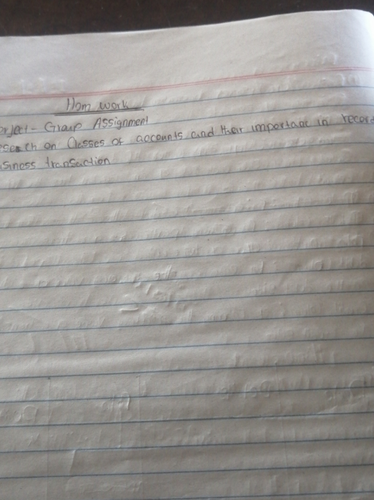 Hom work
oject - Group Assignment
search on Classes of accounts and their importance in record
siness transaction